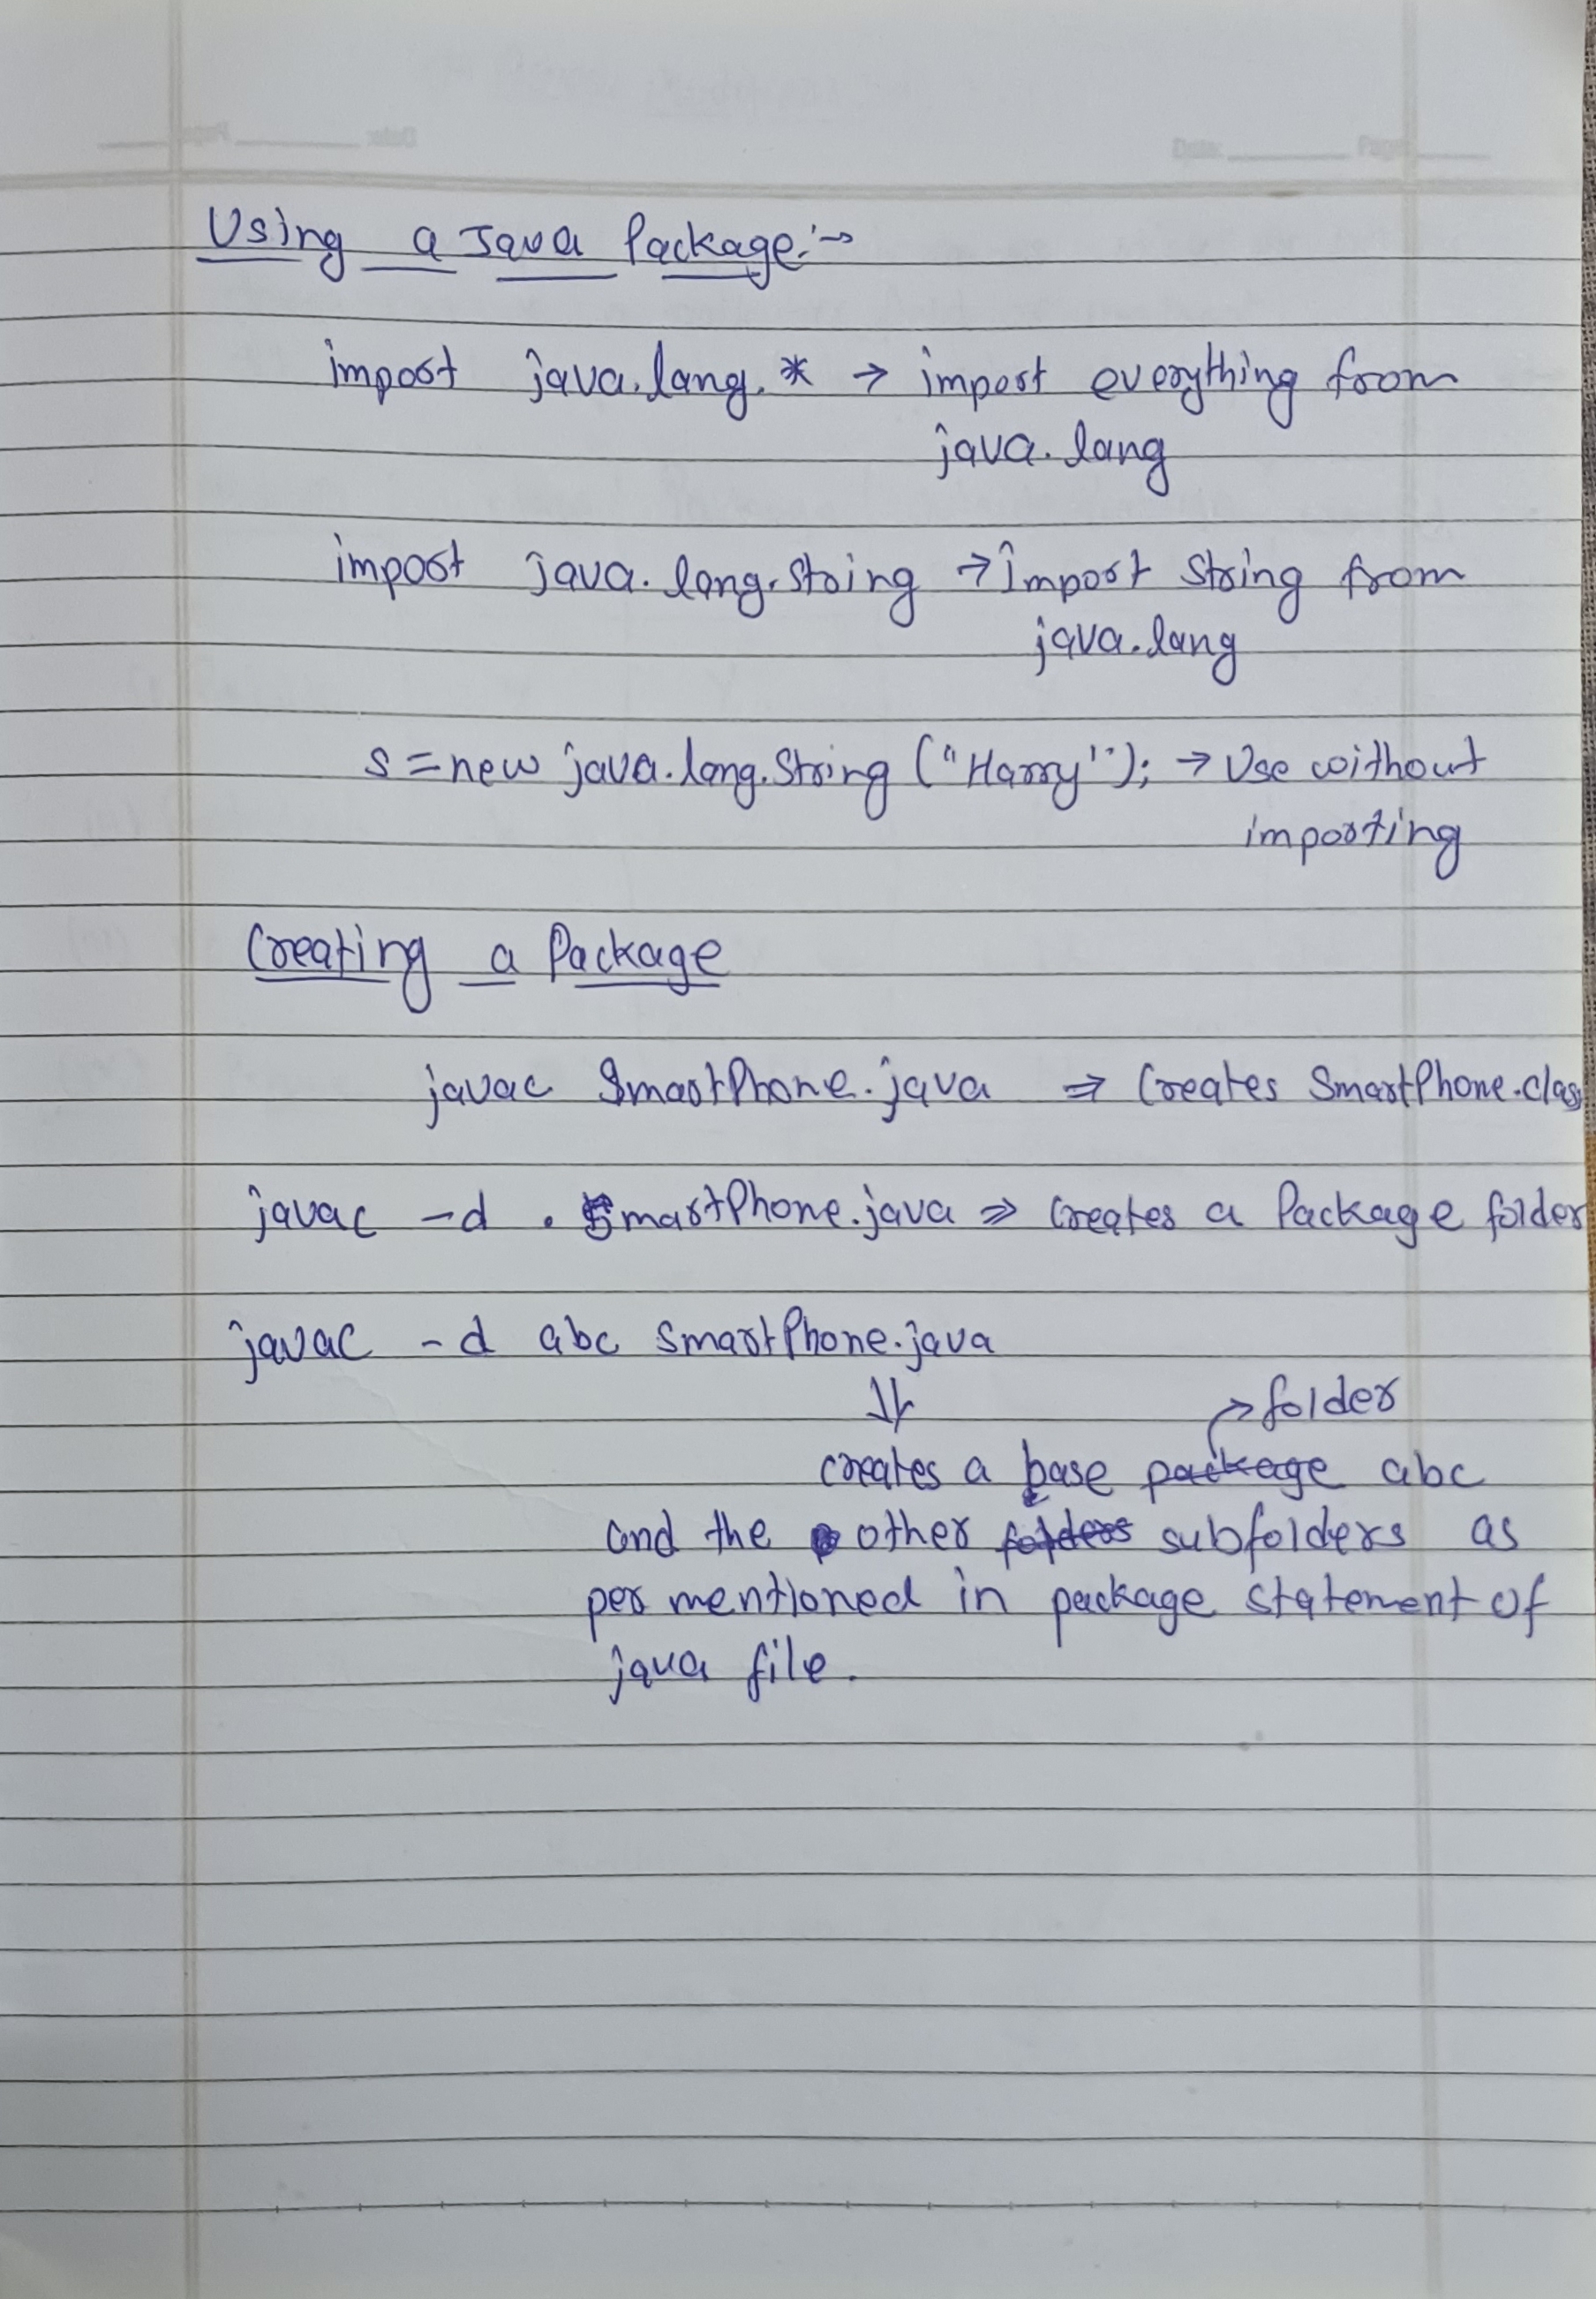 Date: Page:
Using a Java Package:→
import java.lang.* → import everything from
java.lang
import java.lang.String → import String from
java.lang
s = new java.lang.String ("Harry"); → Use without
importing
Creating a Package
javac SmartPhone.java ⇒ Creates SmartPhone.class
javac -d . SmartPhone.java ⇒ Creates a Package folder
javac -d abc SmartPhone.java
⇓ → folder
creates a base package abc
and the other folders subfolders as
per mentioned in package statement of
java file.